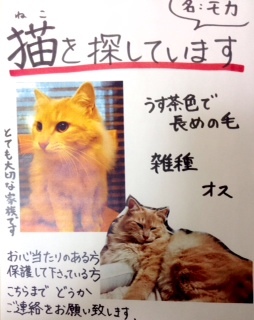 名:モカ
ねこ
猫を探しています
うす茶色で
長めの毛
雑種
オス
とても大切な家族です
お心当たりのある方
保護して下さっている方
こちらまで どうか
ご連絡をお願い致します。